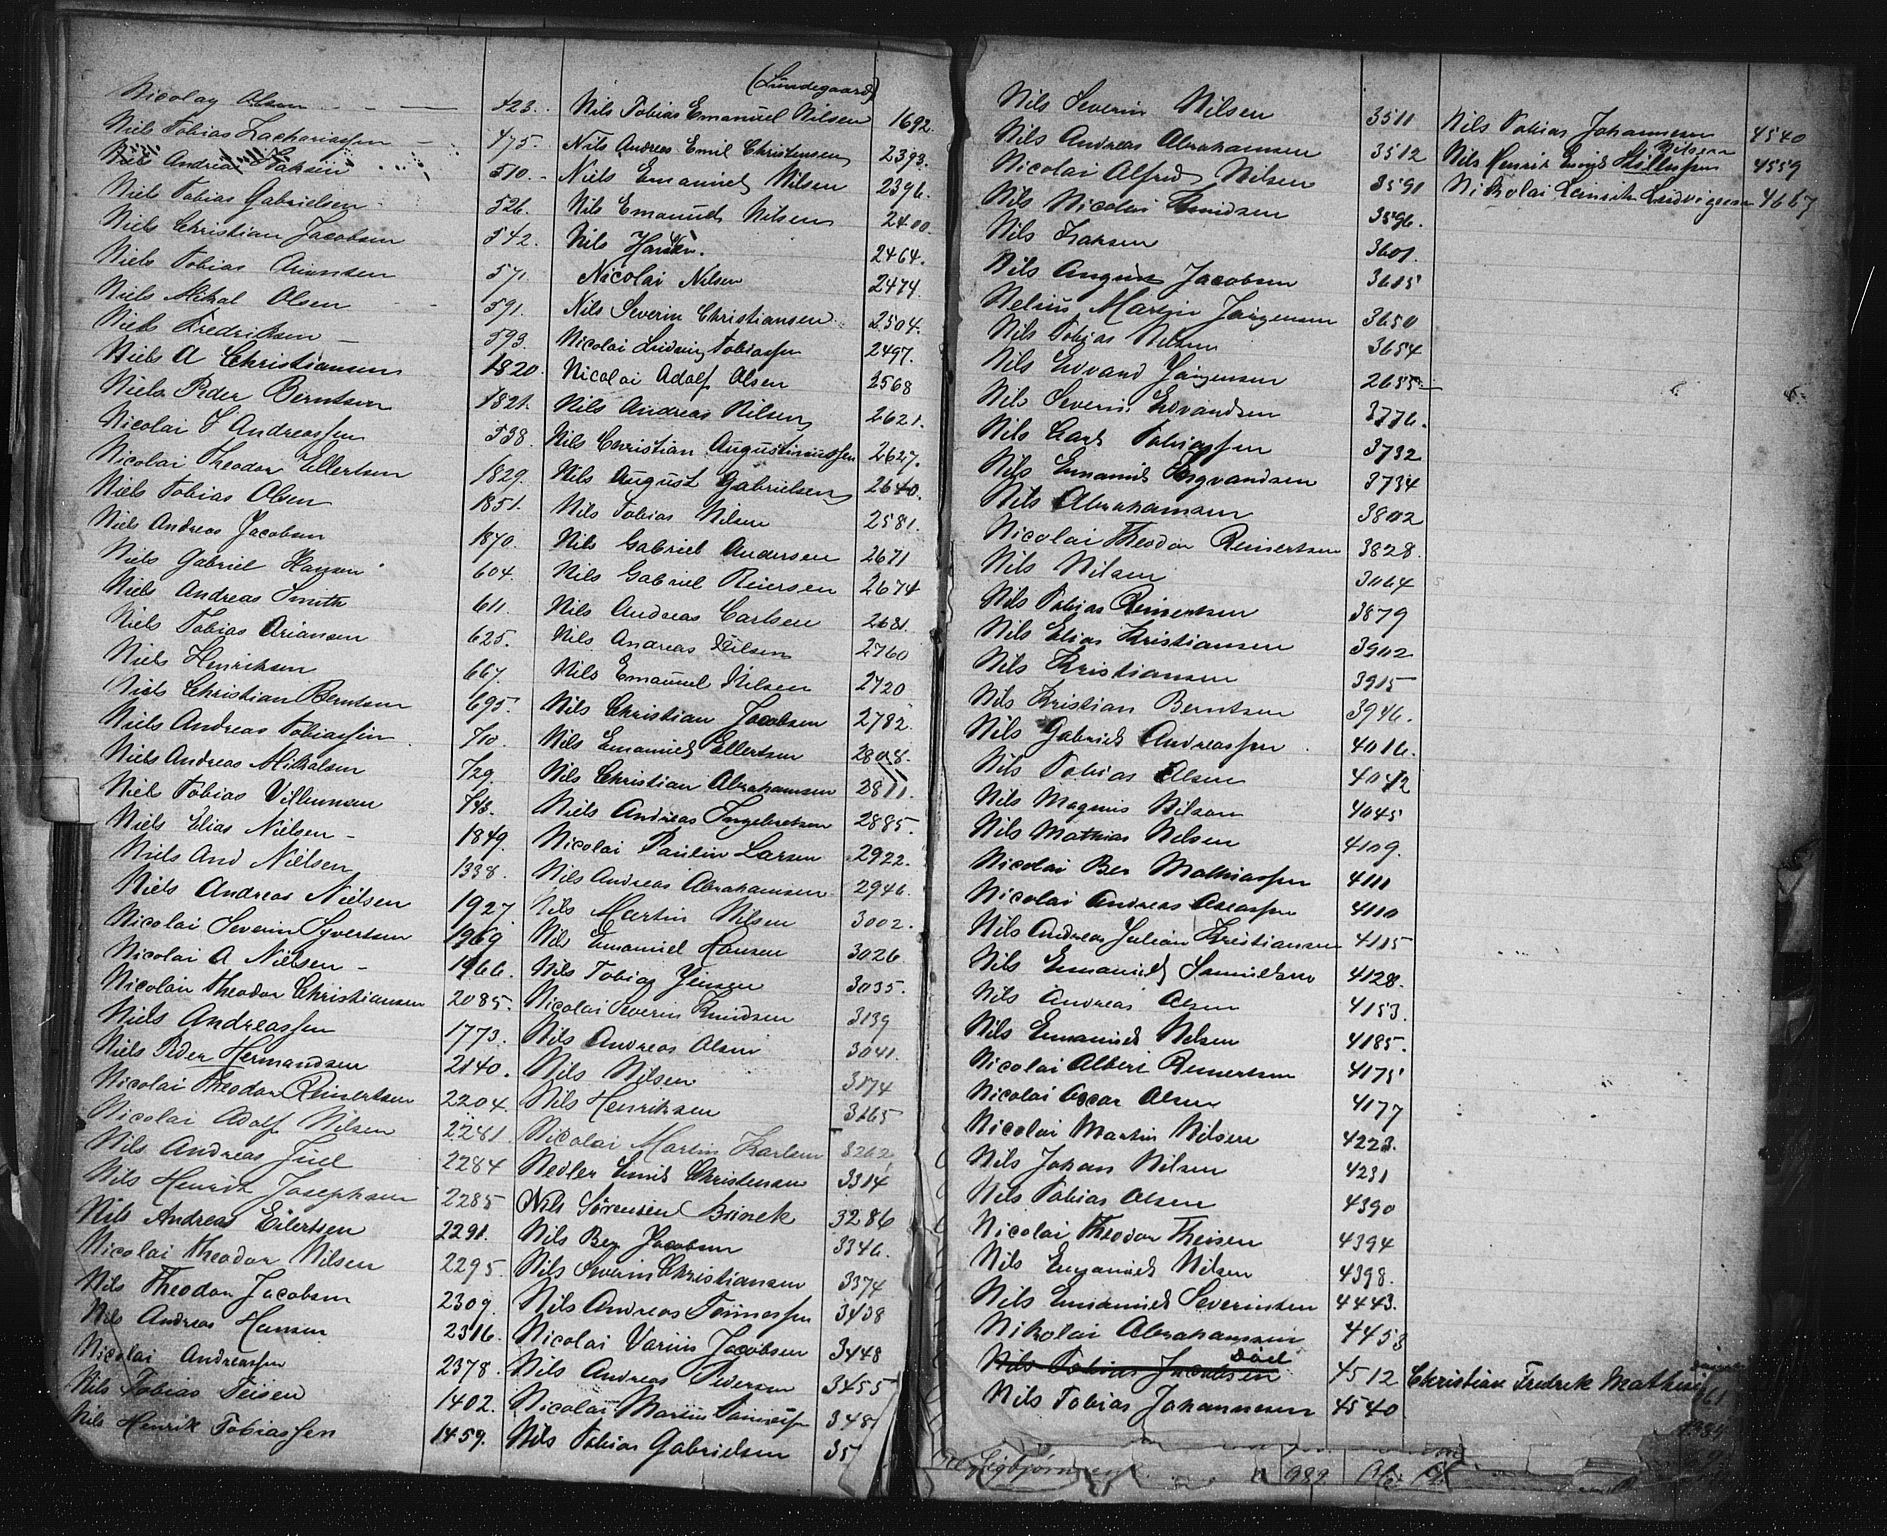 Nicolay Olsen 423.
Niels Tobias Zachariassen 475.
Niels Andreas Isaksen 510.
Niels Tobias Gabrielsen 526.
Niels Christian Jacobsen 542.
Niels Tobias Arentsen 571.
Niels Mikal Olsen 591.
Niels Fredriksen 593.
Niels A Christiansen 1820.
Niels Peder Berntsen 1821.
Nicolai T Andreassen 538.
Nicolai Theodor Ellertsen 1829.
Niels Tobias Olsen 1851.
Niels Andreas Jacobsen 1870.
Niels Gabriel Hansen 604.
Niels Andreas Smith 611.
Niels Tobias Ariansen 625.
Niels Henriksen 667.
Niels Christian Berntsen 695.
Niels Andreas Tobiassen 710.
Niels Andreas Mikalsen 729.
Niels Tobias Villumsen
Niels Elias Nielsen 1849.
Niels And Nielsen 1338.
Niels Andreas Nielsen 1927.
Nicolai Severin Syvertsen 1969
Nicolai A Nielsen 1966.
Nicolai Theodor Christiansen 2085.
Niels Andreassen 1773.
Niels Peder Hermandsen 2140.
Nicolai Theodor Reinertsen 2204.
Nicolai Adolf Nilsen 2281.
Nils Andreas Juel 2284
Nils Henrik Josephsen 2285
Nils Andreas Eilertsen 2291.
Nicolai Theodor Nilsen 2295.
Nils Theodor Jacobsen 2309.
Nils Andreas Hansen 2316.
Nicolai Andreassen 2378.
Nils Tobias Teisen 1402.
Nils Henrik Tobiassen 1459.
(Lundegaard)
Nils Tobias Emanuel Nilsen 1692.
Nils Andreas Emil Christensen 2393.
Niels Emanuel Nilsen 2396.
Nils Emanuel Nilsen 2400.
Nils Hansen. 2464.
Nicolai Nilsen 2474.
Nils Severin Christiansen 2504.
Nicolai Ludvig Tobiassen 2497.
Nicolai Adolf Olsen 2568
Nils Andreas Nilsen 2621.
Nils Christian Augustinussen 2627.
Nils August Gabrielsen 2640.
Nils Tobias Nilsen 2581.
Nils Gabriel Andersen 2671
Nils Gabriel Reiersen 2674
Nils Andreas Carlsen 2681.
Nils Andreas Nilsen 2760
Nils Emanuel Nilsen 2720
Nils Christian Jacobsen 2782.
Nils Emanuel Ellertsen 2808.
Nils Christian Abrahamsen 2811.
Niels Andreas Ingebretsen 2885.
Nicolai Paulin Larsen 2922.
Nils Andreas Abrahamsen 2946.
Nils Martin Nilsen 3002.
Nils Emanuel Hansen 3026
Nils Tobias Jensen 3035.
Nicolai Severin Knudsen 3139
Nils Andreas Olsen 3041.
Nils Nilsen 3174
Nils Henriksen 3165
Nicolai Martin Karlsen 3262
Nedler Emil Christensen 3314
Nils Sørensen Brinck 3286
Nils Ber Jacobsen 3346.
Nils Severin Christiansen 3374
Nils Andreas Tønnessen 3438
Nicolai Varius Jacobsen 3448
Nils Andreas Pedersen 3455
Nicolai Marius 348
Nils Tobias Gabrielsen 35
Nils Severin Nilsen 3511
Nils Andreas Abrahamsen 3512
Nicolai Alfred Nilsen 3591
Nils Nicolai Knudsen 3596.
Nils Isaksen 3601.
Nils August Jacobsen 3615
Nelius Martin Jørgensen 3650
Nils Tobias Nilsen 3654
Nils Edvard Jørgensen 2655
Nils Severin Edvardsen 3776.
Nils Carl Tobiassen 3732
Nils Emanuel Ingvardsen 3734
Nils Abrahamsen 3802
Nicolai Theodor Reinertsen 3828.
Nils Nilsen 3064
Nils Tobias Reinertsen 3879
Nils Elias Kristiansen 3902
Nils Kristiansen 3915
Nils Kristian Berntsen 3946.
Nils Gabriel Andreassen 4016.
Nils Tobias Olsen 4042
Nils Magnus Nilsen 4045
Nils Mathias Nilsen 4109.
Nicolai Ber Mathiassen 4111
Nicolai Andreas Aseassen 4110
Nils Andreas Julian Kristiansen 4115
Nils Emanuel Samuelsen 4128.
Nils Andreas Olsen 4153.
Nils Emanuel Nilsen 4185.
Nicolai Albert Reinertsen 4175
Nicolai Oscar Olsen 4177
Nicolai Martin Nilsen 4223.
Nils Johan Nilsen 4231
Nils Tobias Olsen 4390
Nicolai Theodor Theisen 4394
Nils Emanuel Nilsen 4398.
Nils Emanuel Severinsen 4443.
Nikolai Abrahamsen 4453
Nils Tobias Jacobsen død 4512
Nils Tobias Johannesen 4540
Nils Tobias Johannesen 4540
Nilsen
Nils Henrik 4559
Nikolai Ludvigsen 4667
Christian Fredrik
982